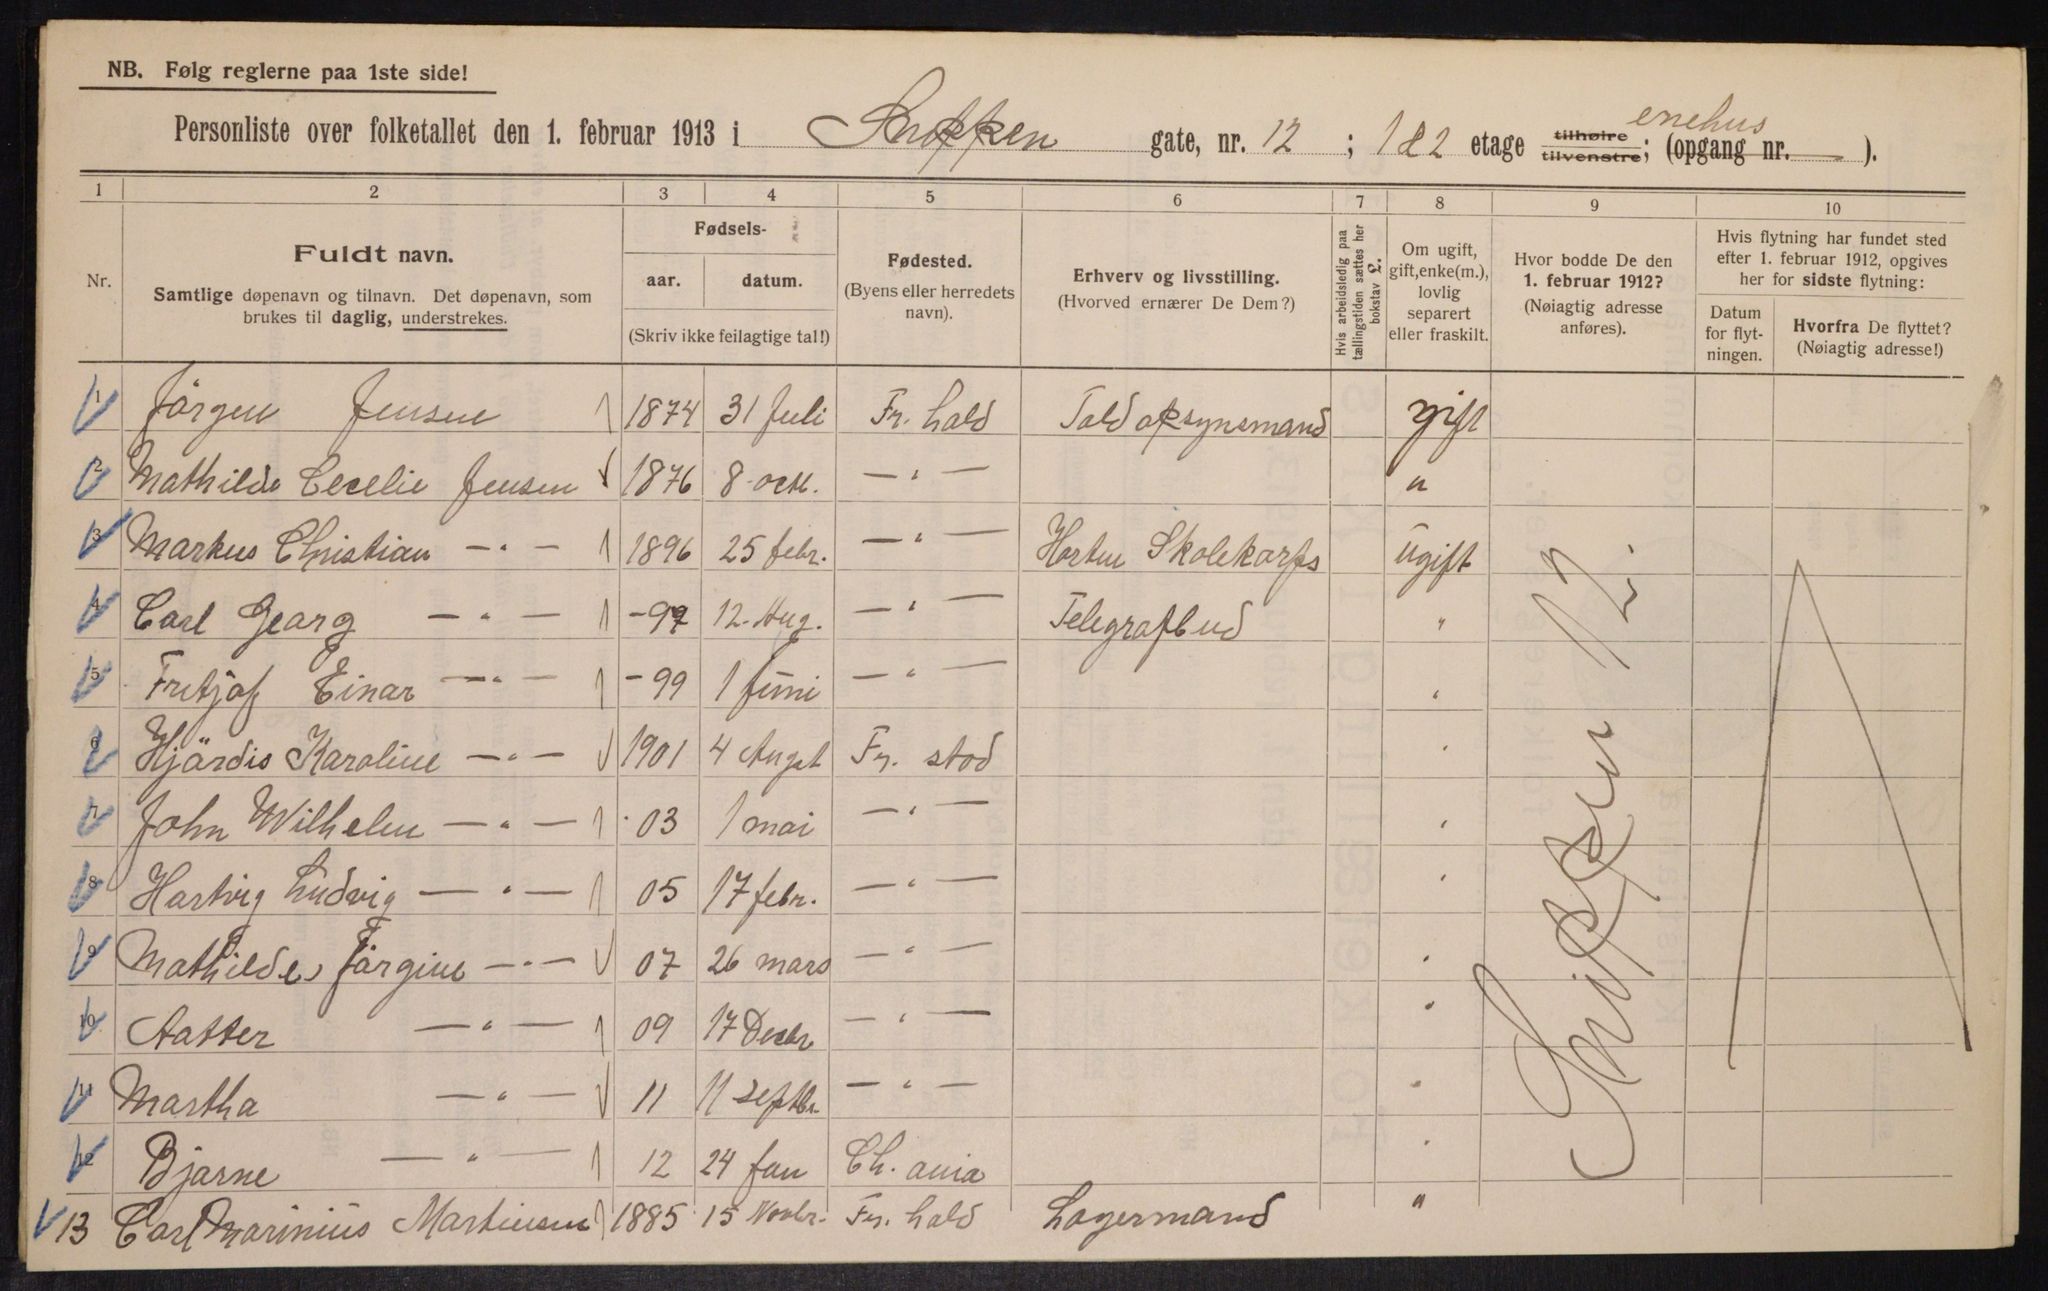 NB. Følg reglerne paa 1ste side!
enehus
Personliste over folketallet den 1. februar 1913 i Snippen gate, nr. 12 ; 1 & 2 etage tilhøire tilvenstre; (opgang nr. ).
1 2 3 4 5 6 7 8 9 10
Nr.
Fuldt navn.
Samtlige døpenavn og tilnavn. Det døpenavn, som
brukes til daglig, understrekes.
Fødsels-
aar. datum.
(Skriv ikke feilagtige tal!)
Fødested.
(Byens eller herredets
navn).
Erhverv og livsstilling.
(Hvorved ernærer De Dem?)
Hvis arbeidsledig paa
tællingstiden sættes her
bokstav L.
Om ugift,
gift, enke(m.),
lovlig
separert
eller fraskilt.
Hvor bodde De den
1. februar 1912?
(Nøiagtig adresse
anføres).
Hvis flytning har fundet sted
efter 1. februar 1912, opgives
her for sidste flytning:
Datum
for flyt-
ningen.
Hvorfra De flyttet?
(Nøiagtig adresse!)
1 Jörgen Jensen 1874 31 Juli Fr. hald Toldopsynsmand gift
2 Mathilde Cecelie Jensen 1876 8 octl. — " — "
3 Markus Christian — " — 1896 25 febr. — " — Horten Skolekorps Ugift
4 Carl Georg — " — -97 12. Aug. — " — Telegrafbud "
5 Fritjof Einar — " — -99 1 Juni — " — "
6 Hjördis Karoline — " — 1901 4 Augst Fr. stad "
7 John Wilhelm — " — 03 1 mai — " — "
8 Hartvig Ludvig — " — 05 17 febr. — " — "
9 Mathilde Jörgine — " — 07 26 mars — " — "
10 Aaster — " — 09 17 Decbr — " — "
11 Martha — " — 11 11 septbr. — " — "
12 Bjarne — " — 12 24 Jan Ch. ania "
13 Carl Marinius Martinsen 1885 15 Novbr. Fr. hald Lagermand "
Snippen 12.